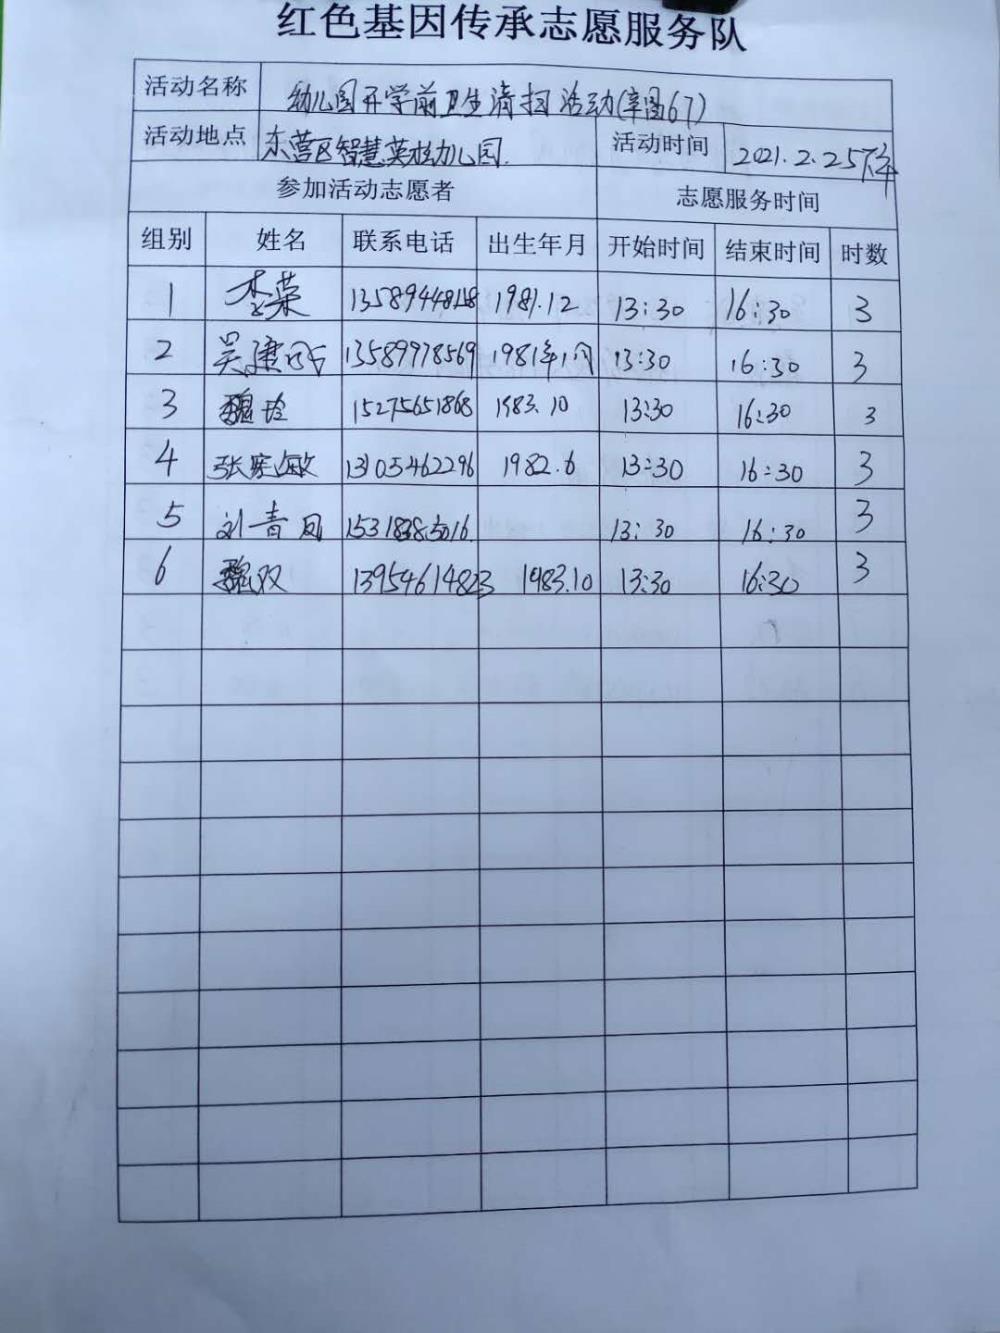 红色基因传承志愿服务队
活动名称 幼儿园开学前卫生清扫活动(辛图67)
活动地点 东营区智慧英桂幼儿园. 活动时间 2021.2.25下午
参加活动志愿者 志愿服务时间
组别 姓名 联系电话 出生年月 开始时间 结束时间 时数
1 李荣 1981.12 13:30 16:30 3
2 13589978569 1981年1月 13:30 16:30 3
3 魏玲 15275651868 1983.10 13:30 16:30 3
4 张宪敏 13105462296 1982.6 13:30 16:30 3
5 刘青凤 13:30 16:30 3
6 魏双 1983.10 13:30 16:30 3